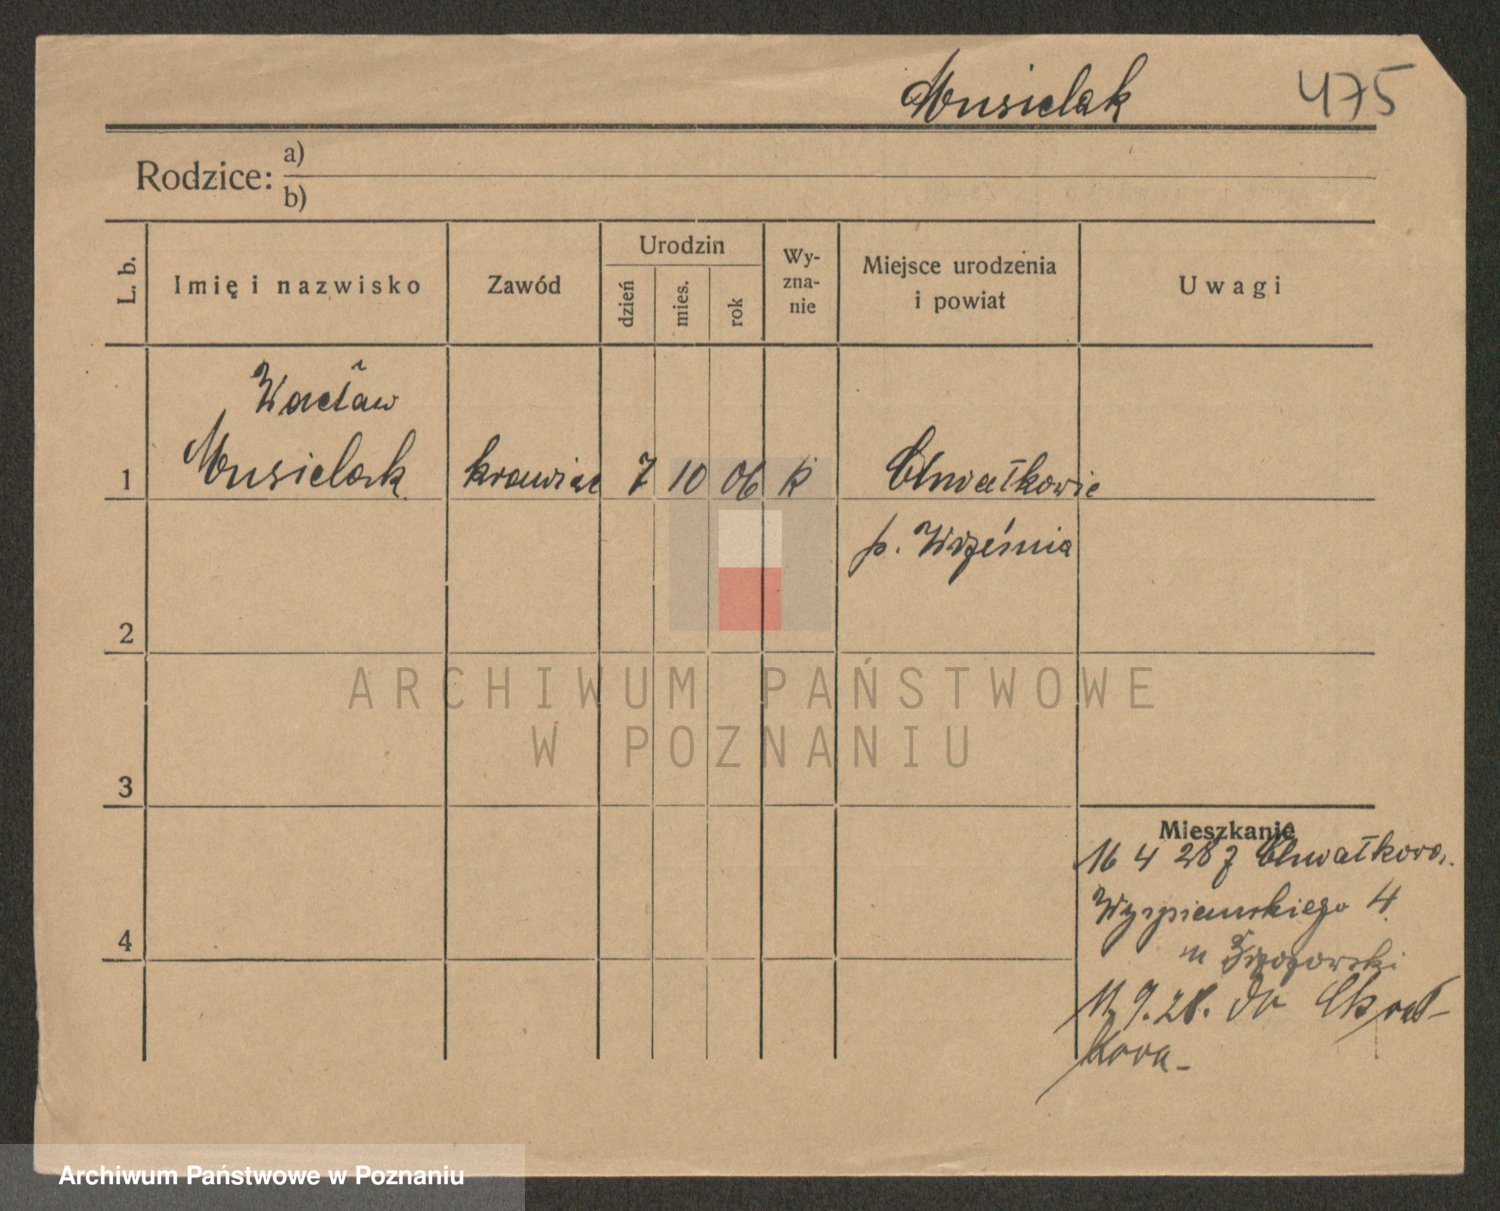 Musielak 475
Rodzice: a)
b)
L. b. Imię i nazwisko Zawód Urodzin dzień mies. rok Wy-zna-nie Miejsce urodzenia i powiat Uwagi
Wacław
1 Musielak krawiec 7 10 06 k Chwałkowie
p. Września
2
ARCHIWUM PAŃSTWOWE
W POZNANIU
3
Mieszkanie
16 4 28 z Chwałkowa.
Wyspianskiego 4
4
m
9.28. do Chwał-
kowa-
Archiwum Państwowe w Poznaniu